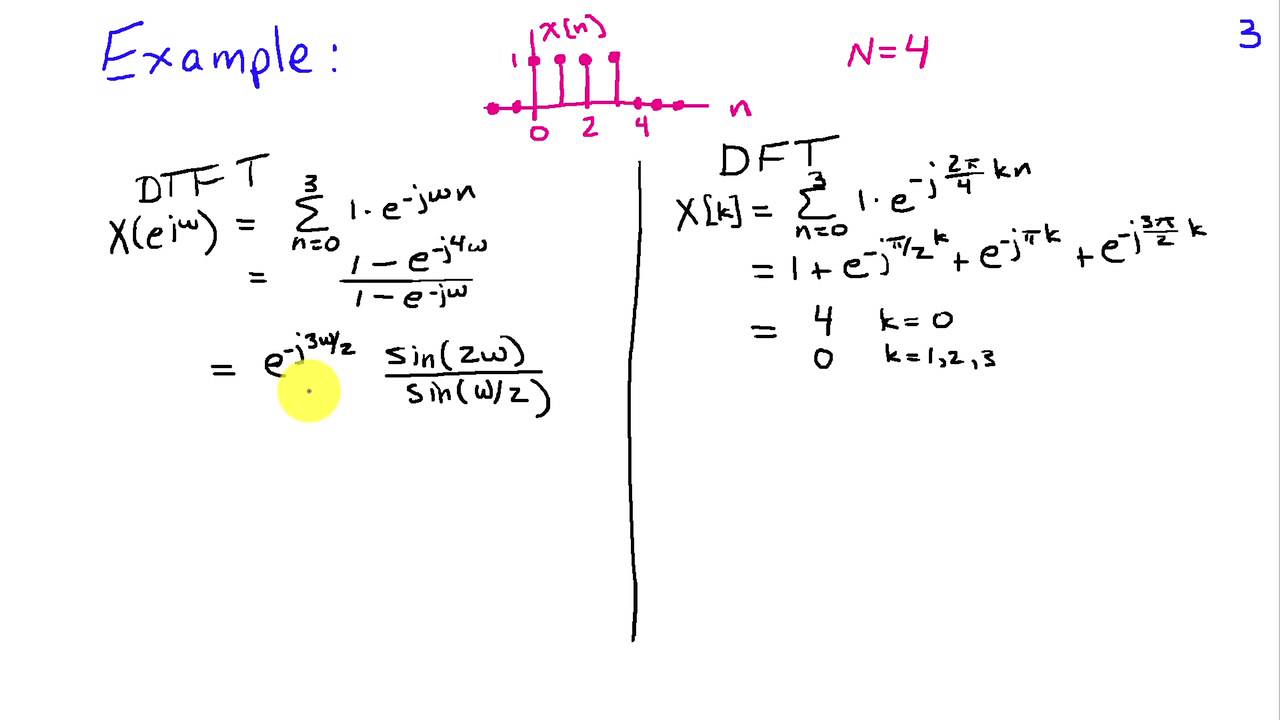 Example:
x[n]
N=4
3
1
n
0 2 4
DTFT
X(e^jω) = Σ_{n=0}^{3} 1·e^{-jωn}
= (1-e^{-j4ω})/(1-e^{-jω})
= e^{-j3ω/2} sin(2ω)/sin(ω/2)
DFT
X[k] = Σ_{n=0}^{3} 1·e^{-j(2π/4)kn}
= 1+e^{-jπ/2 k}+e^{-jπk}+e^{-j(3π/2)k}
= 4 k=0
0 k=1,2,3